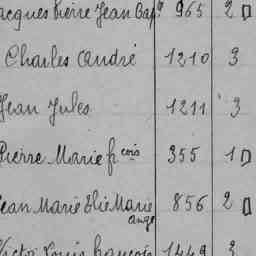 acques Pierre Jean Bapt 965 2 D
Charles André 1210 3
Jean Jules 1211 3
Pierre Marie fcois 355 1 D
Jean Marie Elie Marie Ange 856 2 D
Victor Louis François 1449 3